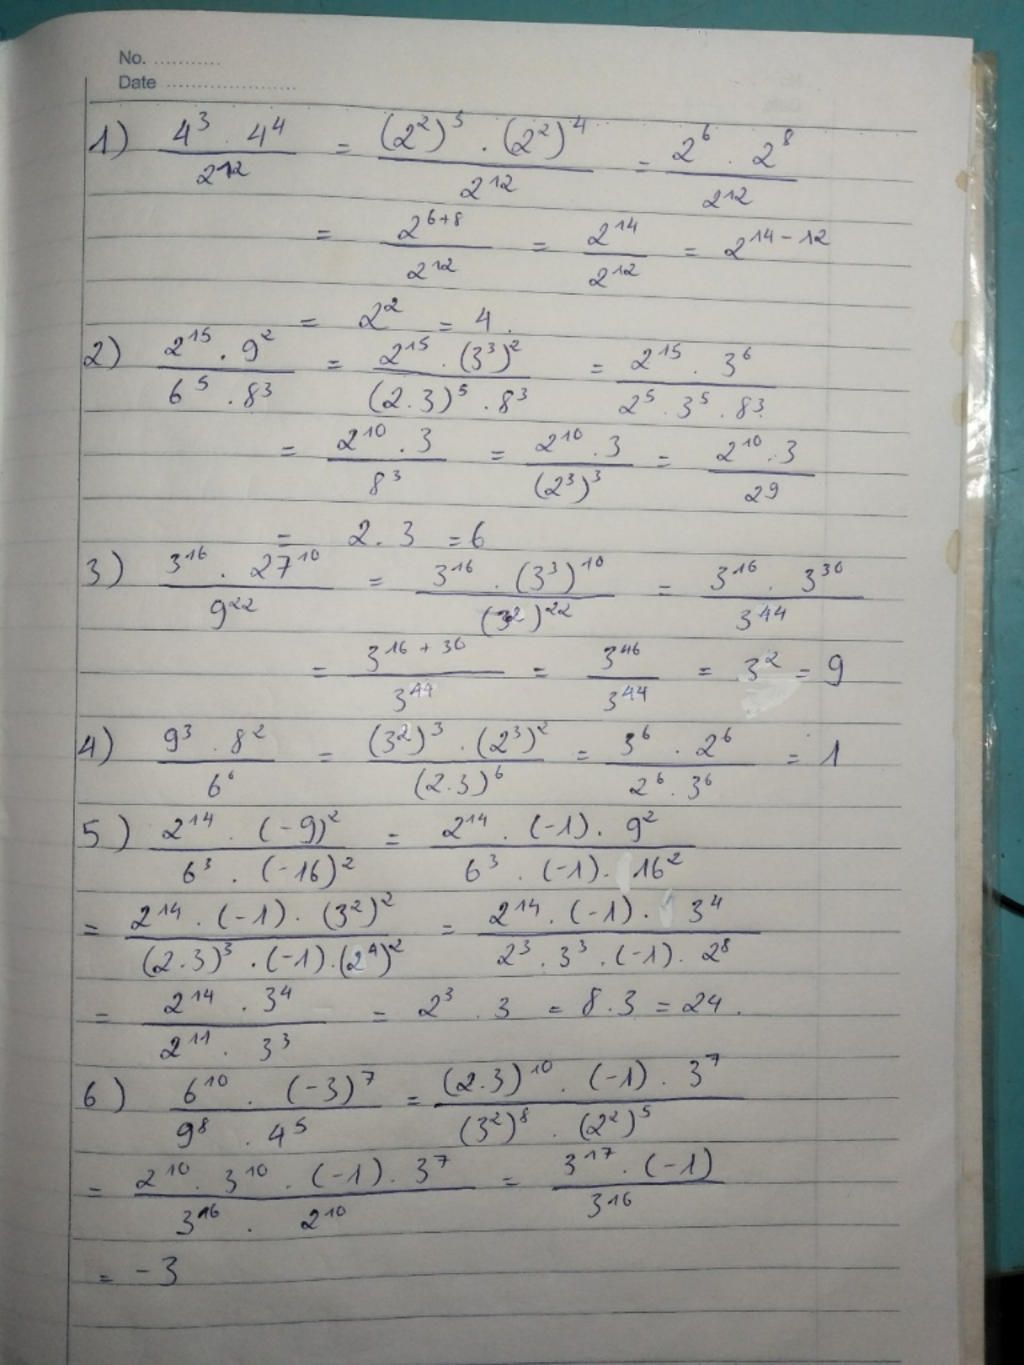 No. ...........
Date ......................
1) \frac{4^3 . 4^4}{2^{12}} = \frac{(2^2)^3 . (2^2)^4}{2^{12}} = \frac{2^6 . 2^8}{2^{12}}
= \frac{2^{6+8}}{2^{12}} = \frac{2^{14}}{2^{12}} = 2^{14-12}
= 2^2 = 4.
2) \frac{2^{15} . 9^2}{6^5 . 8^3} = \frac{2^{15} . (3^3)^2}{(2.3)^5 . 8^3} = \frac{2^{15} . 3^6}{2^5 . 3^5 . 8^3}
= \frac{2^{10} . 3}{8^3} = \frac{2^{10} . 3}{(2^3)^3} = \frac{2^{10} . 3}{2^9}
= 2.3 = 6
3) \frac{3^{16} . 27^{10}}{9^{22}} = \frac{3^{16} . (3^3)^{10}}{(3^2)^{22}} = \frac{3^{16} . 3^{30}}{3^{44}}
= \frac{3^{16+30}}{3^{44}} = \frac{3^{46}}{3^{44}} = 3^2 = 9
4) \frac{9^3 . 8^2}{6^6} = \frac{(3^2)^3 . (2^3)^2}{(2.3)^6} = \frac{3^6 . 2^6}{2^6 . 3^6} = 1
5) \frac{2^{14} . (-9)^2}{6^3 . (-16)^2} = \frac{2^{14} . (-1) . 9^2}{6^3 . (-1) . 16^2}
= \frac{2^{14} . (-1) . (3^2)^2}{(2.3)^3 . (-1) . (2^4)^2} = \frac{2^{14} . (-1) . 3^4}{2^3 . 3^3 . (-1) . 2^8}
= \frac{2^{14} . 3^4}{2^{11} . 3^3} = 2^3 . 3 = 8.3 = 24.
6) \frac{6^{10} . (-3)^7}{9^8 . 4^5} = \frac{(2.3)^{10} . (-1) . 3^7}{(3^2)^8 . (2^2)^5}
= \frac{2^{10} . 3^{10} . (-1) . 3^7}{3^{16} . 2^{10}} = \frac{3^{17} . (-1)}{3^{16}}
= -3